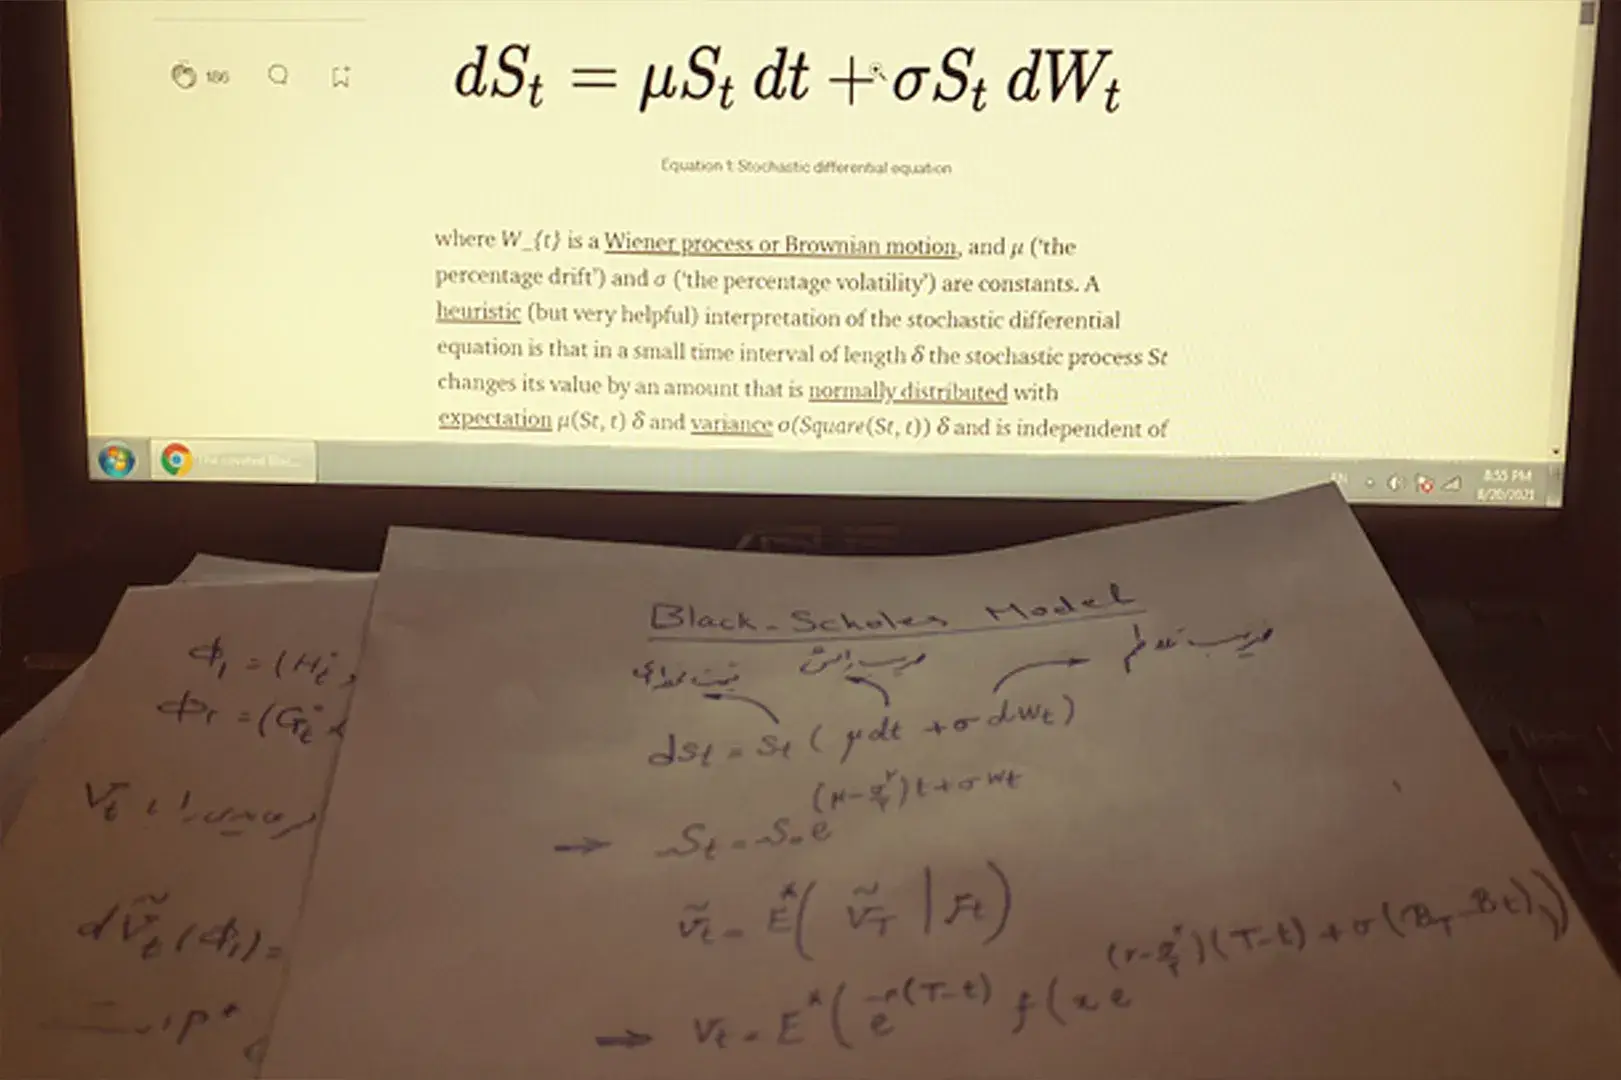 186
dSₜ = μSₜ dt + σSₜ dWₜ
Equation 1: Stochastic differential equation
where W_{t} is a Wiener process or Brownian motion, and μ (‘the
percentage drift’) and σ (‘the percentage volatility’) are constants. A
heuristic (but very helpful) interpretation of the stochastic differential
equation is that in a small time interval of length δ the stochastic process St
changes its value by an amount that is normally distributed with
expectation μ(St, t) δ and variance σ(Square(St, t)) δ and is independent of
EN
8:55 PM
8/20/2021
Black-Scholes Model
ضریب تلاطم
dSt = St ( μdt + σ dWt )
St = S۰ e^(μ-σ^۲/۲)t+σWt
Ṽt = E*( ṼT | Ft )
Vt = E*( e^-r(T-t) f( x e^(r-σ^۲/۲)(T-t)+σ(BT-Bt) ))
Φ₁ = (Hti,
Φ۲ = (Gti
Vt
dṼt(Φ₁) =
P*